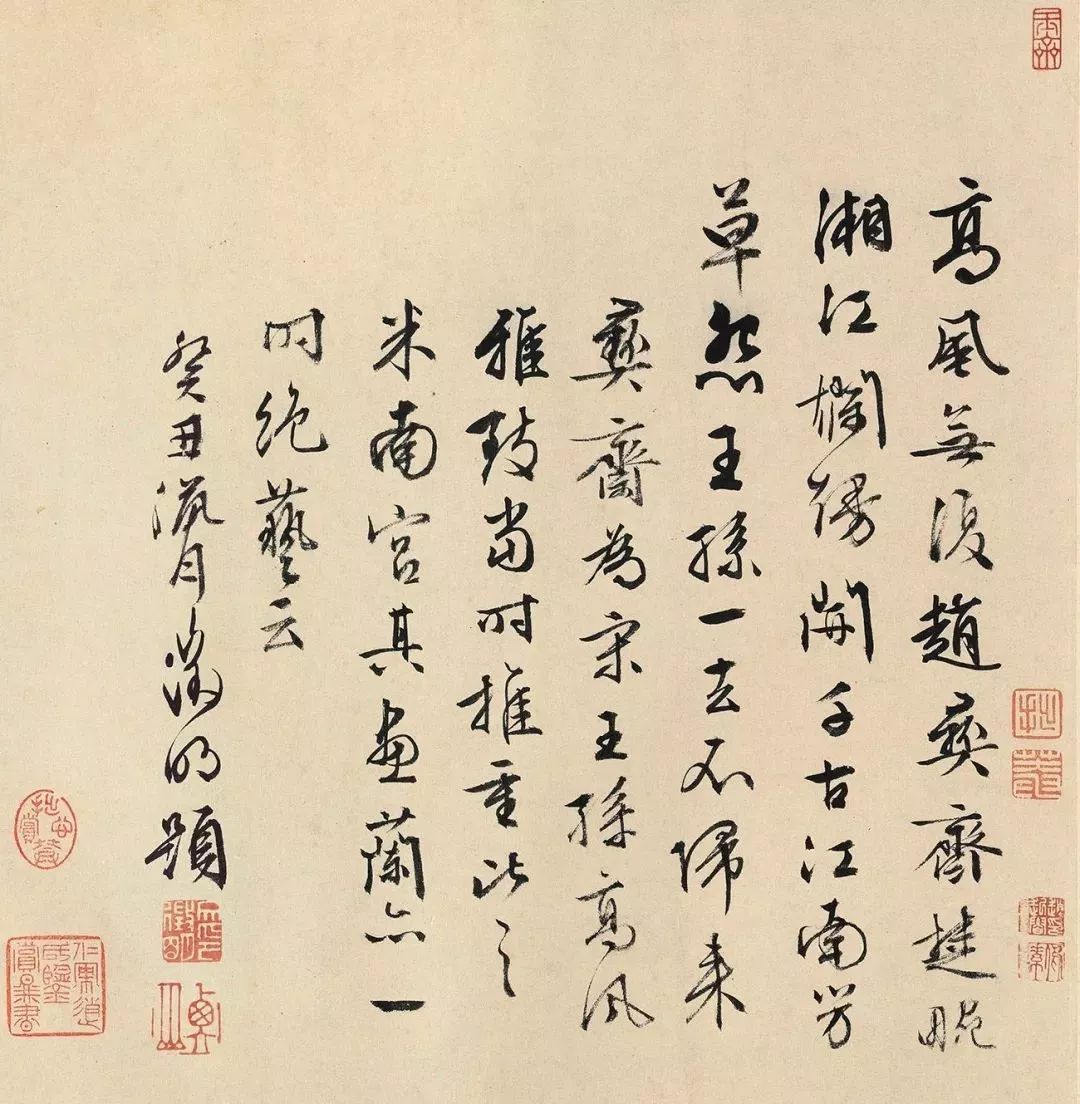 高風無復趙彝齋楚畹
湘江爛熳開千古江南芳
草怨王孫一去不歸來
彝齋為宋王孫高風
雅致當时推重比之
米南宮其畫蘭亦一
时絕藝云
癸丑臘月徵明題
文徵明印
衡山